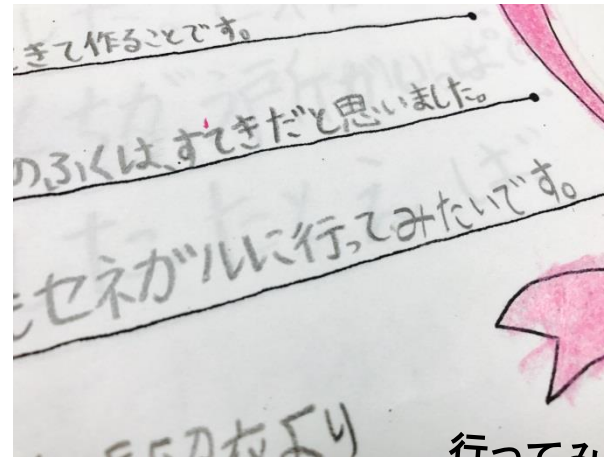 きて作ることです。
のふくは、すてきだと思いました。
もセネガルに行ってみたいです。
より
行ってみ